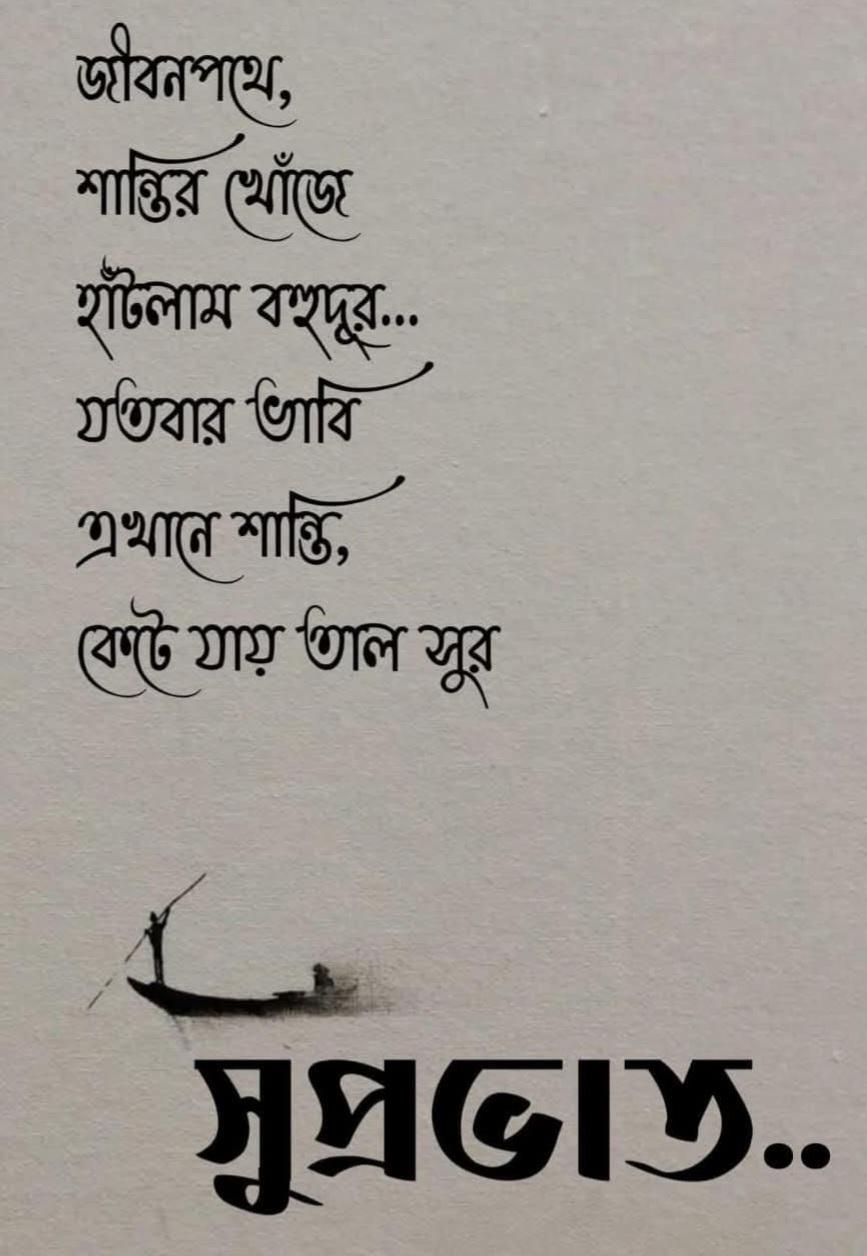 জীবনপথে,
শান্তির খোঁজে
হাঁটলাম বহুদূর...
যতবার ভাবি
এখানে শান্তি,
কেটে যায় তাল সুর
সুপ্রভাত..